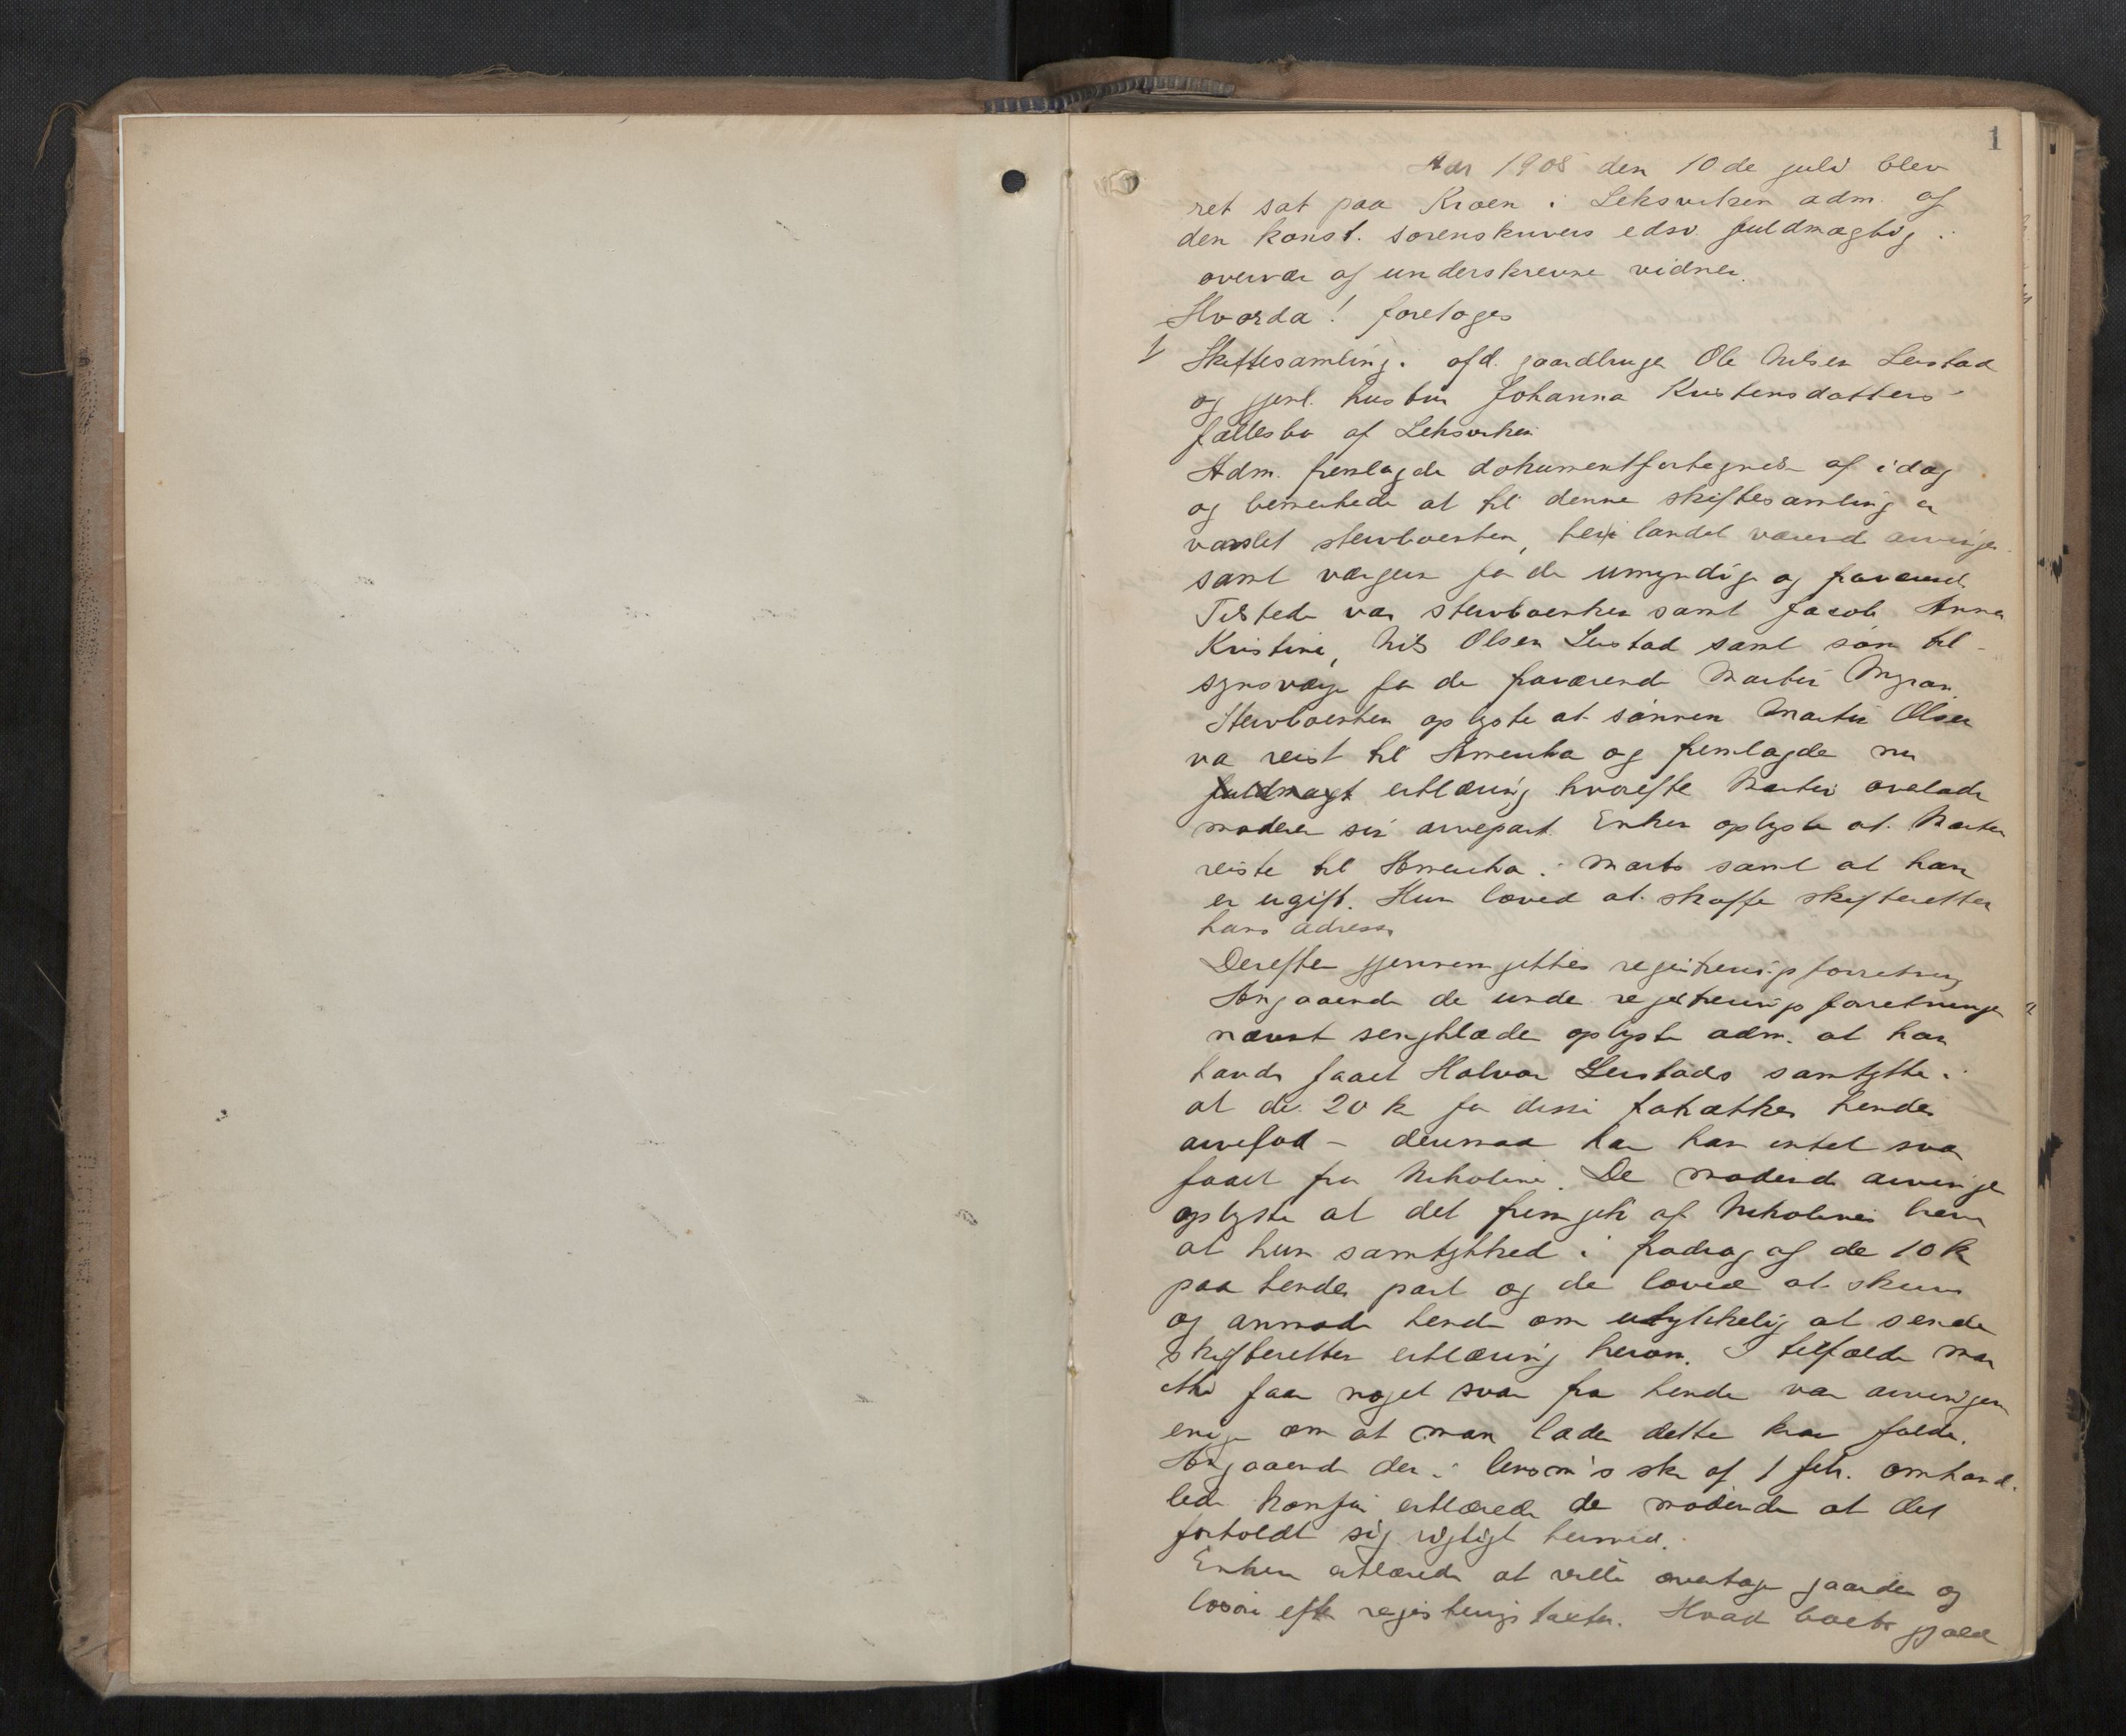 1
Aar 1908 den 10de juli blev
ret sat paa Kroen i Leksviken adm. af
den konst. sorenskrivers edsv. fuldmægtig i
overvær af underskrevne vidner.
Hvorda! foretoges
1 Skiftesamling i afd. gaardbruger Ole Nilsen Leistad
og gjenl. hustru Johanna Kristensdatters
fællesbo af Leksviken
Adm. fremlagde dokumentfortegnelse af idag
og bemerkede at til denne skiftesamling er
varslet sterboenken, her i landet værende arvinger
samt værgen for de umyndige og fraværende
Tilstede var sterboenken samt Jacob Anna
Kristine, Nils Olsen Leistad samt som til
synsværge for de fraværende Martin Myran.
Sterboenken oplyste at sønnen Martin Olsen
var reist til Amerika og fremlagde nu
fuldmagt erklæring hvorefter Martin overlader
moderen sin arvepart. Enken oplyste at Martin
reiste til Amerika i marts samt at han
er ugift. Hun loved at skaffe skifteretten
hans adresse
Derefter gjennemgikkes registreringsforretning
Angaaende de under registreringsforretningen
nævnt sengklæder oplyste adm. at han
havde faaet Halvor Leistads samtykke i
at de 20 kr for disse fratrækkes hendes
arvelod – derimod har han intet svar
faaet fra Nikoline. De mødende arvinger
oplyste at det fremgik af Nikolines brev
at hun samtykked i fradrag af de 10 kr
paa hendes part og de loved at skrive
og anmode hende om udtrykkelig at sende
skifteretten erklæring herom. I tilfælde man
ikke faar noget svar fra hende var arvingerne
enige om at man lader dette krav falde.
Angaaende den i skr af 1 febr. omhand-
lede erklærede de mødende at det
forholdt sig rigtigt hermed.
Enken erklærede at ville overtage gaarden og
løsøre efter registreringstaxten. Hvad boets gjæld